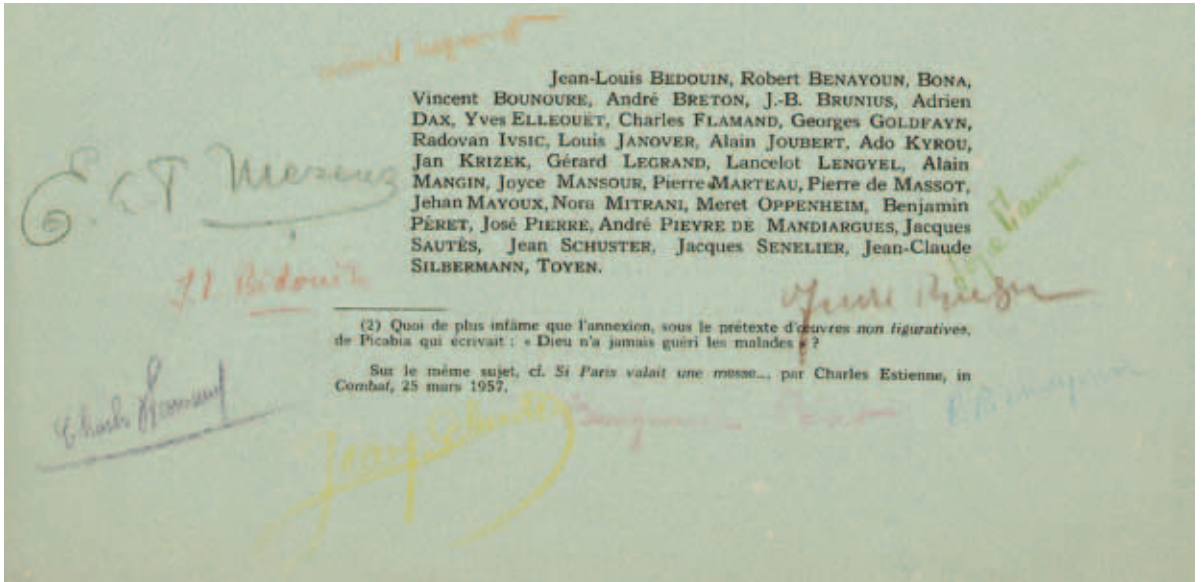 Jean-Louis BEDOUIN, Robert BENAYOUN, BONA,
Vincent BOUNOURE, André BRETON, J.-B. BRUNIUS, Adrien
DAX, Yves ELLEOUËT, Charles FLAMAND, Georges GOLDFAYN,
Radovan IVSIC, Louis JANOVER, Alain JOUBERT, Ado KYROU,
Jan KRIZEK, Gérard LEGRAND, Lancelot LENGYEL, Alain
MANGIN, Joyce MANSOUR, Pierre MARTEAU, Pierre de MASSOT,
Jehan MAYOUX, Nora MITRANI, Meret OPPENHEIM, Benjamin
PÉRET, José PIERRE, André PIEYRE DE MANDIARGUES, Jacques
SAUTÈS, Jean SCHUSTER, Jacques SENELIER, Jean-Claude
SILBERMANN, TOYEN.
E. L. T Mesens
J L Bédouin
(2) Quoi de plus infâme que l'annexion, sous le prétexte d'œuvres non figuratives,
de Picabia qui écrivait : « Dieu n'a jamais guéri les malades » ?
Sur le même sujet, cf. Si Paris valait une messe..., par Charles Estienne, in
Combat, 25 mars 1957.
Charles Flamand
Jean Schuster
Benjamin Péret
R. Benayoun